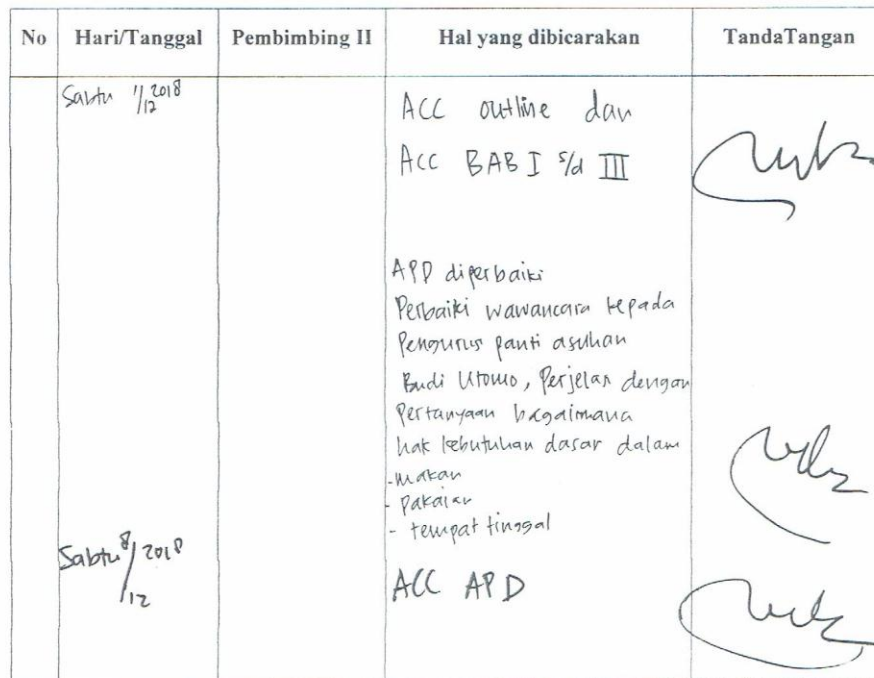 No Hari/Tanggal Pembimbing II Hal yang dibicarakan TandaTangan
Sabtu 1/12 2018
ACC outline dan
ACC BAB I s/d III
APD diperbaiki
Perbaiki wawancara kepada
Pengurus panti asuhan
Budi Utomo, Perjelas dengan
Pertanyaan bagaimana
hak kebutuhan dasar dalam
- makan
- pakaian
- tempat tinggal
Sabtu 8/12 2018
ACC APD